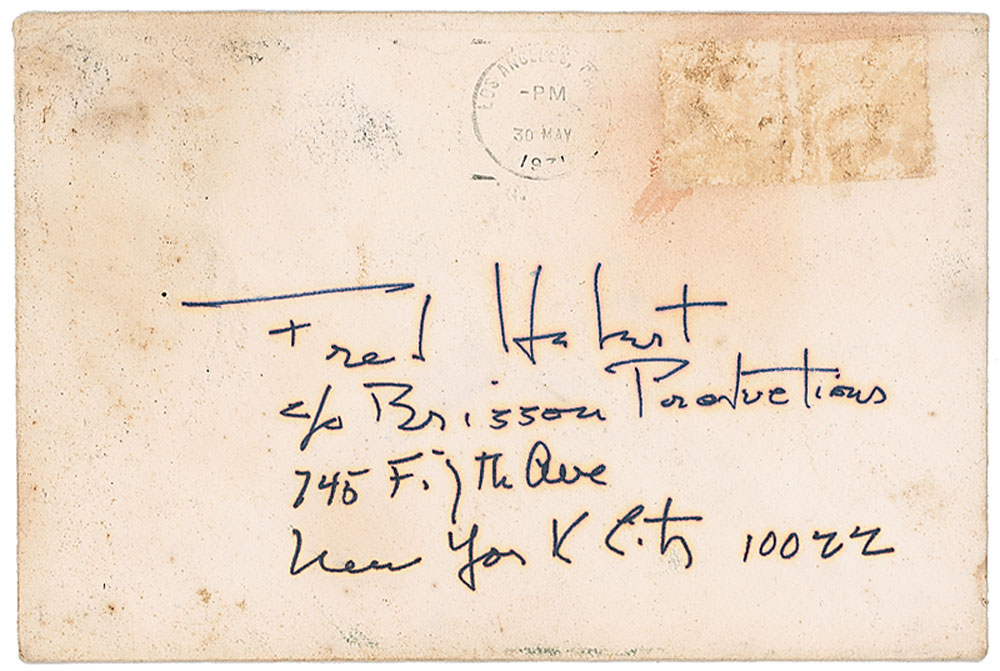 LOS ANGELES,
-PM
30 MAY
1971
Fred Hebert
c/o Brisson Productions
745 Fifth Ave
New York City 10022